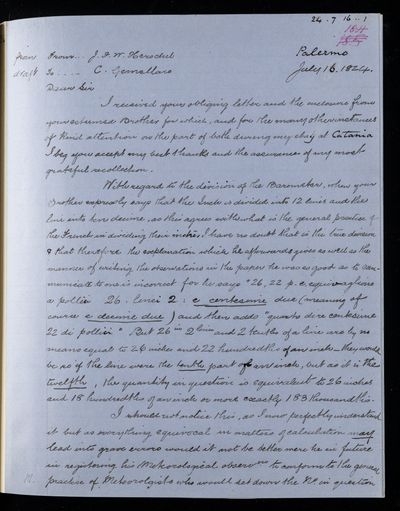 24 . 7 16 .. 1
184
From From .. J. F. W. Herschel Palermo
draft To .... C. Gemellaro July 16. 1824.
Dear Sir
I received your obliging letter and the enclosure from
your esteemed Brother for which, and for the many other instances
of kind attention on the part of both during my stay at Catania
I beg you accept my best thanks and the assurance of my most
grateful recollection.
With regard to the division of the Barometer, when your
Brother expressly says that the Inch is divided into 12 lines and this
line into ten decime, as this agrees with what is the general practice of
the French in dividing their inches, I have no doubt that is the true division
& that therefore the explanation which he afterwards gives as well as the
manner of writing the observations in the paper he was so good as to com-
municate to me is incorrect for he says "26, 22 p. c. equivagliono
a pollici 26. linei 2 : e centesime due (meaning of
course e decime due) and then adds "quarto dire centesime
22 di pollici". But 26 in 2 lines and 2 tenths of a line are by no
means equal to 26 inches and 22 hundredths of an inch – they would
be so if the line were the tenth part of an inch, but as it is the
twelfth, the quantity in question is equivalent to 26 inches
and 18 hundredths of an inch or more exactly 183 thousandths.
I should not notice this, as I now perfectly understand
it but as everything equivocal in matters of calculation may
lead into grave errors would it not be better were he in future
in registering his Meteorological observns to conform to the general
practice of Meteorologists who would set down the No in question